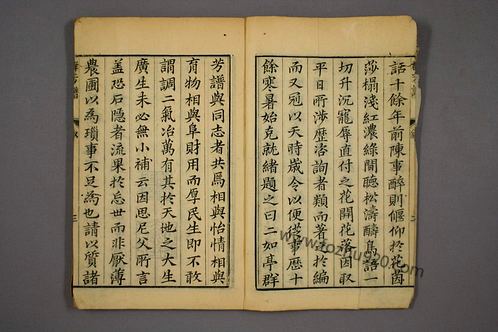 話十餘年前陳事醉則偃仰於花茵
莎榻淺紅濃綠間聽松濤酬鳥語一
切升沉寵辱直付之花開花落因取
平日所涉歷咨詢者類而著於編
而又冠以天時歲令以便從事歷十
餘寒暑始克就緒題之曰二如亭群
芳譜與同志者共焉相與怡情相與
育物相與阜財用而厚民生即不敢
謂調二氣冶萬有其於天地之大生
廣生未必無小補云因思尼父所言
蓋恐石隱者流果於忘世而非厭薄
農圃以為瑣事不足為也請以質諸
三
www.tozhu920.com